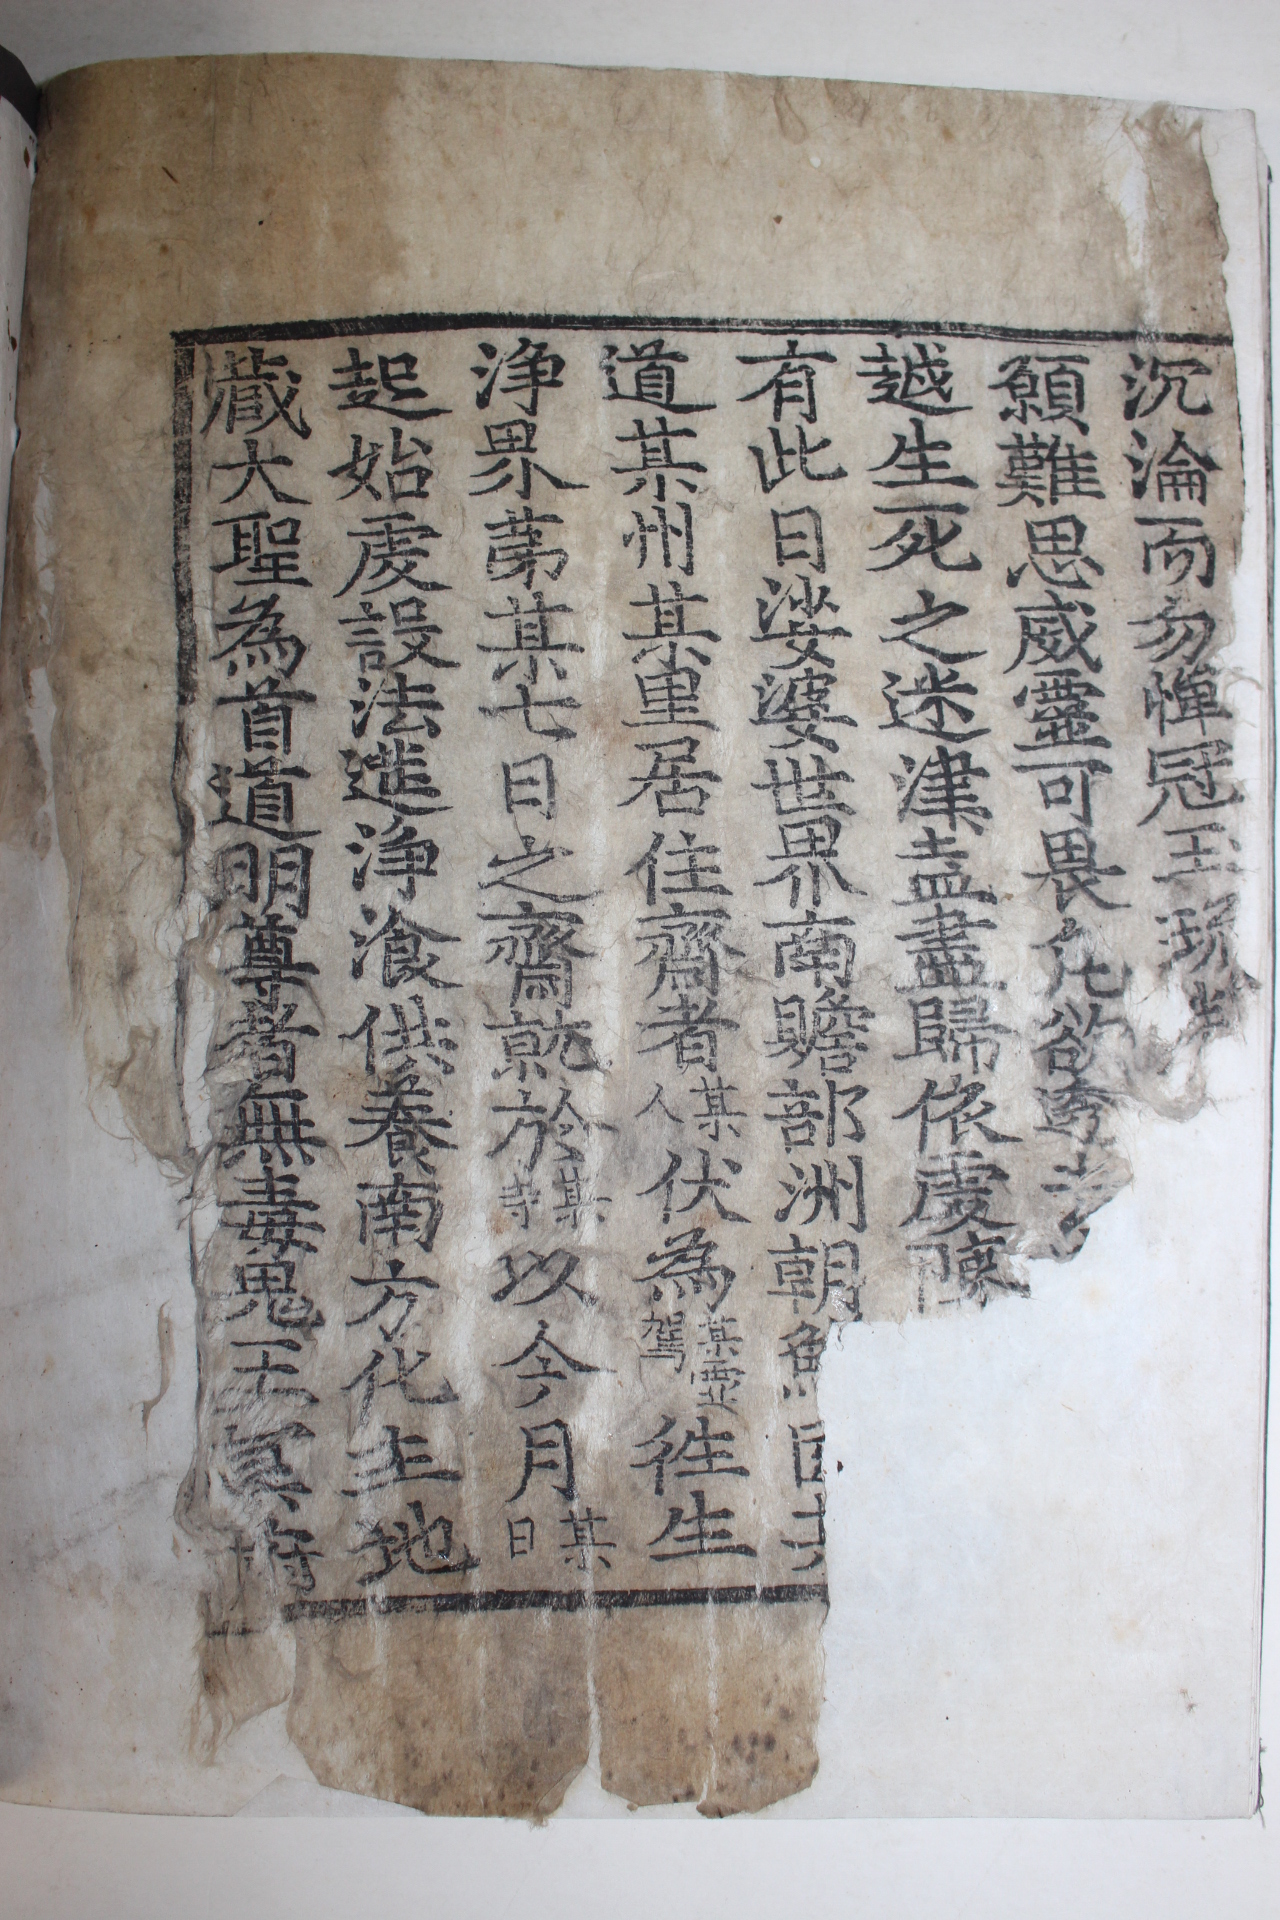 沉淪而勿憚冠玉
願難思威靈可畏凡欲
越生死之迷津盍盡歸依處
有此日娑婆世界南贍部洲朝
道某州某里居住齋者某人伏為某靈駕徃生
淨界第某七日之齋就於某寺以今月某日
起始虔設法筵淨飡供養南方化主地
藏大聖為首道明尊者無毒鬼王冥府